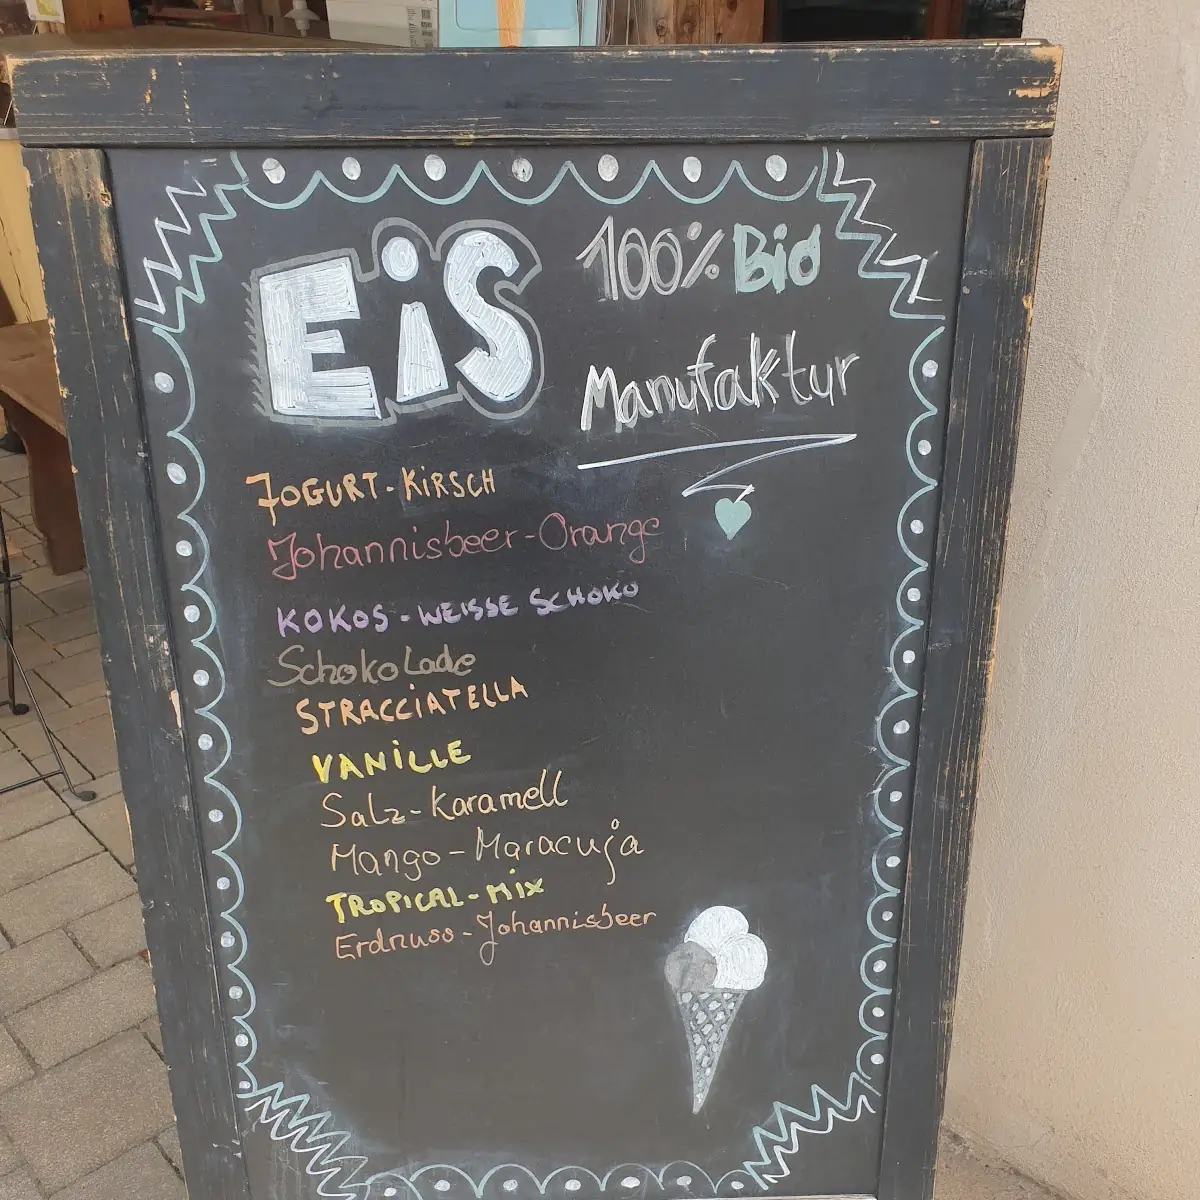 EiS
100% Bio
Manufaktur
JOGURT-KiRSCH
Johannisbeer-Orange
KOKOS-WEISSE SCHOKO
Schokolade
STRACCiATELLA
VANiLLE
Salz-Karamell
Mango-Maracuja
TROPiCAL-MiX
Erdnuss-Johannisbeer